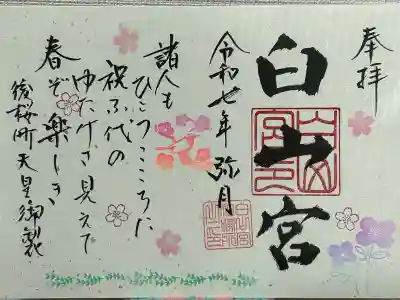 奉拝
白山宮
令和七年 弥月
諸人も
ひとつこころに
祝ふ代の
ゆたけさ見えて
春ぞ楽しき
後桜町天皇御製